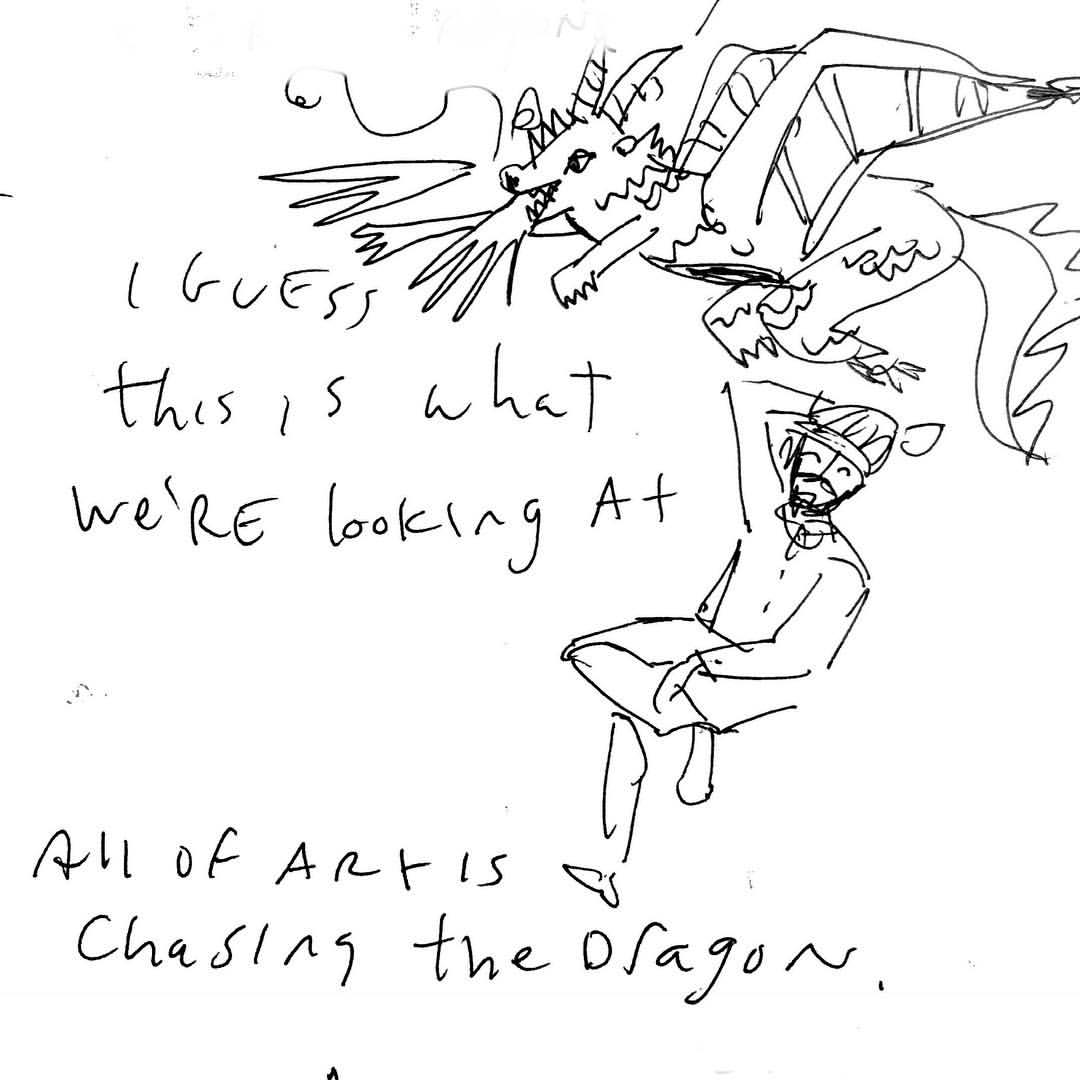 I GUESS
this is what
We'RE looking At
All OF ARt IS
Chasing the Dragon.